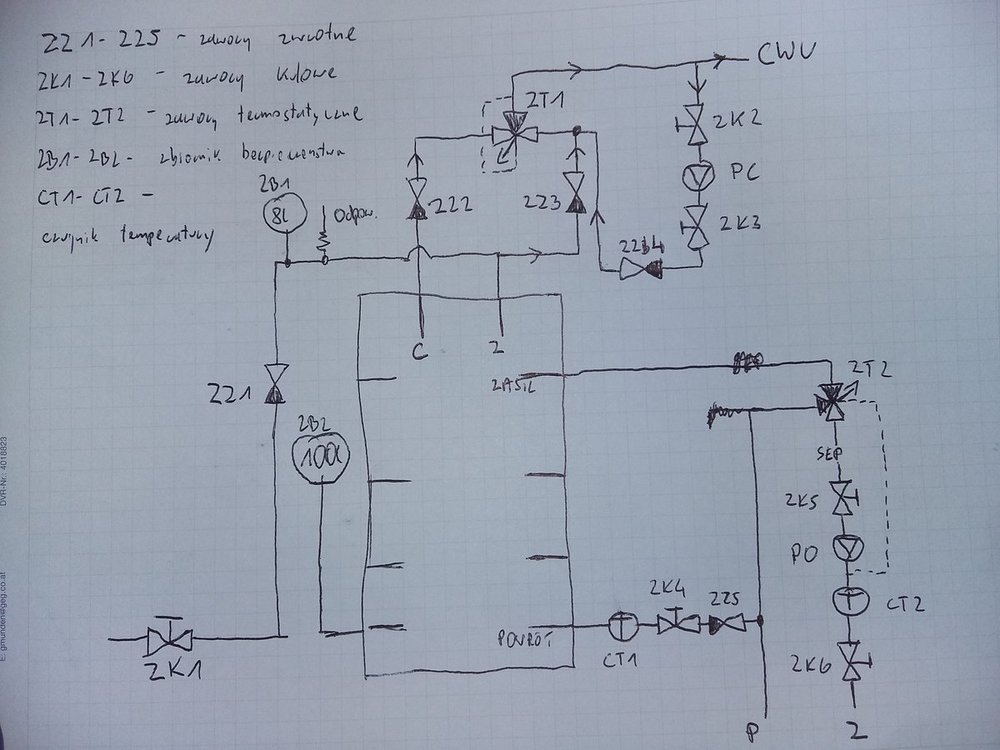 ZZ1-ZZ5 - zawory zwrotne
ZK1-ZK6 - zawory kulowe
ZT1-ZT2 - zawory termostatyczne
ZB1-ZB2 - zbiornik bezpieczeństwa
CT1-CT2 -
czujnik temperatury
ZB1
8L
Odpow.
ZT1
CWU
ZK2
PC
ZK3
ZZ4
ZZ2
ZZ3
C
Z
ZASIL
ZZ1
ZB2
100L
ZT2
SEP
ZK5
PO
CT2
ZK6
Z
ZK4
ZZ5
CT1
POWRÓT
ZK1
P
DVR-Nr.: 4018823
E: gmunden@geg.co.at